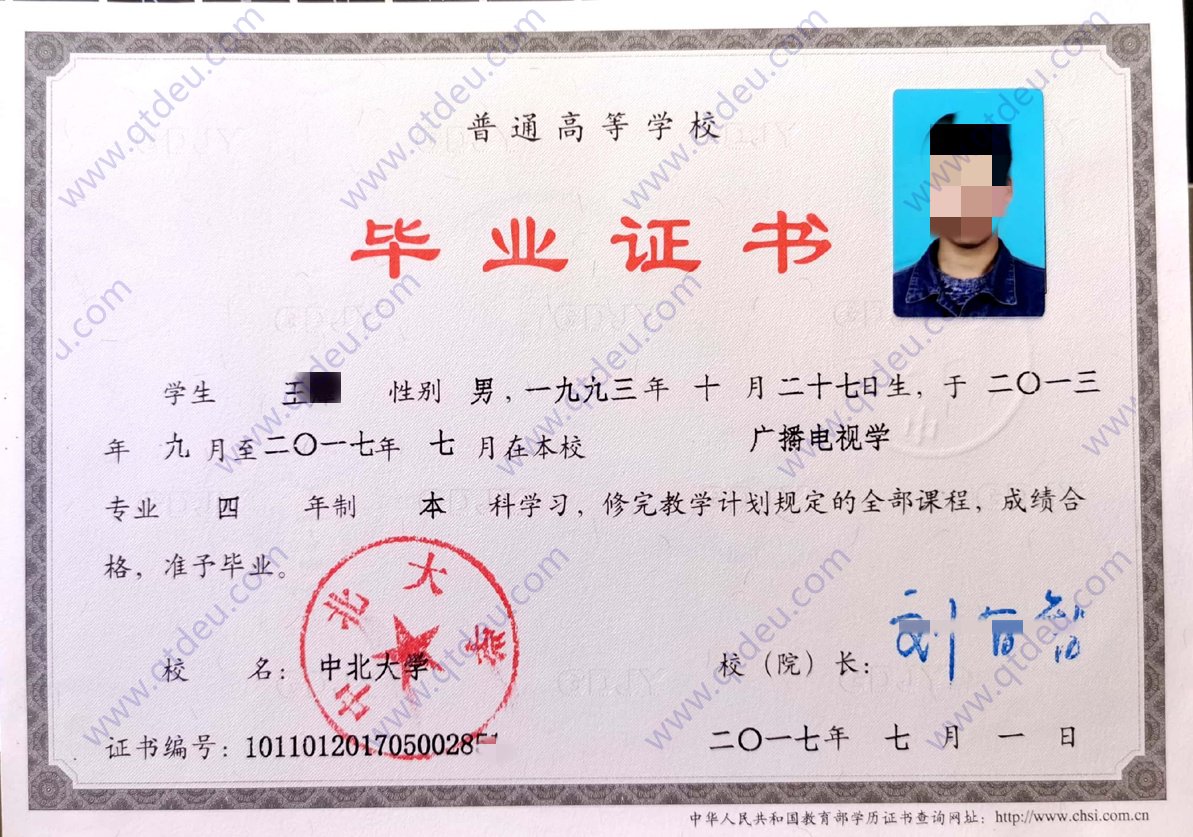 普通高等学校
毕业证书
学生 王 性别 男，一九九三年 十 月二十七日生，于 二〇一三
年 九 月至二〇一七年 七 月在本校 广播电视学
专业 四 年制 本 科学习，修完教学计划规定的全部课程，成绩合
格，准予毕业。
中北大学
校 名：中北大学
校（院）长：
证书编号：1011012017050028
二〇一七年 七 月 一 日
中华人民共和国教育部学历证书查询网址：http://www.chsi.com.cn
www.qtdeu.com